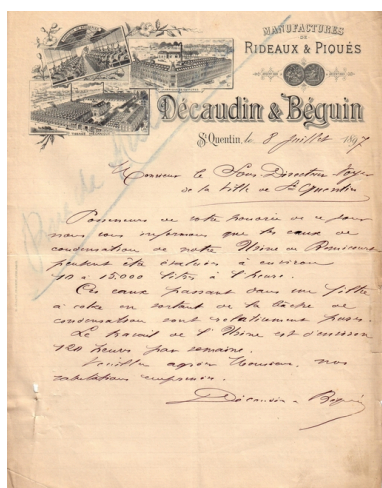 MANUFACTURES
DE
RIDEAUX & PIQUÉS
Décaudin & Béguin
St Quentin, le 8 Juillet 1897
Monsieur le Sous Directeur
de la Ville de St Quentin
de ce jour
nous vous informons que les eaux de
condensation de notre Usine de
peuvent être à environ
10 à 15.000 litres à l'heure.
Ces eaux passant dans un filtre
à en sortant de la bâche de
condensation sont relativement pures.
Le travail de l'Usine est d'environ
120 heures par semaine.
Veuillez agréer Monsieur, nos
salutations empressées.
Décaudin & Béguin